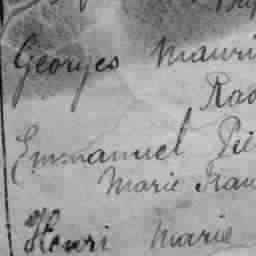 Georges Mauri
Rao
Emmanuel Pie
Marie Fran
Henri Marie